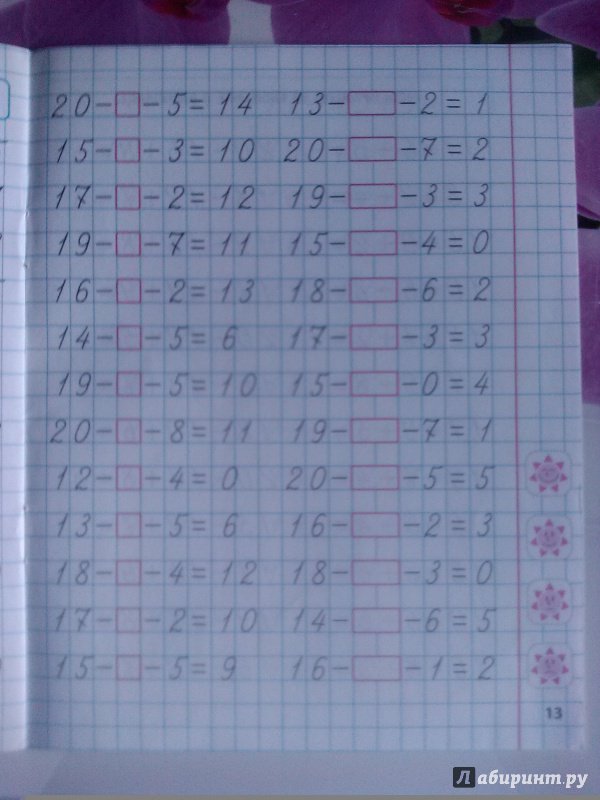 20-□-5=14 13-□-2=1
15-□-3=10 20-□-7=2
17-□-2=12 19-□-3=3
19-□-7=11 15-□-4=0
16-□-2=13 18-□-6=2
14-□-5=6 17-□-3=3
19-□-5=10 15-□-0=4
20-□-8=11 19-□-7=1
12-□-4=0 20-□-5=5
13-□-5=6 16-□-2=3
18-□-4=12 18-□-3=0
17-□-2=10 14-□-6=5
15-□-5=9 16-□-1=2
13
Лабиринт.ру